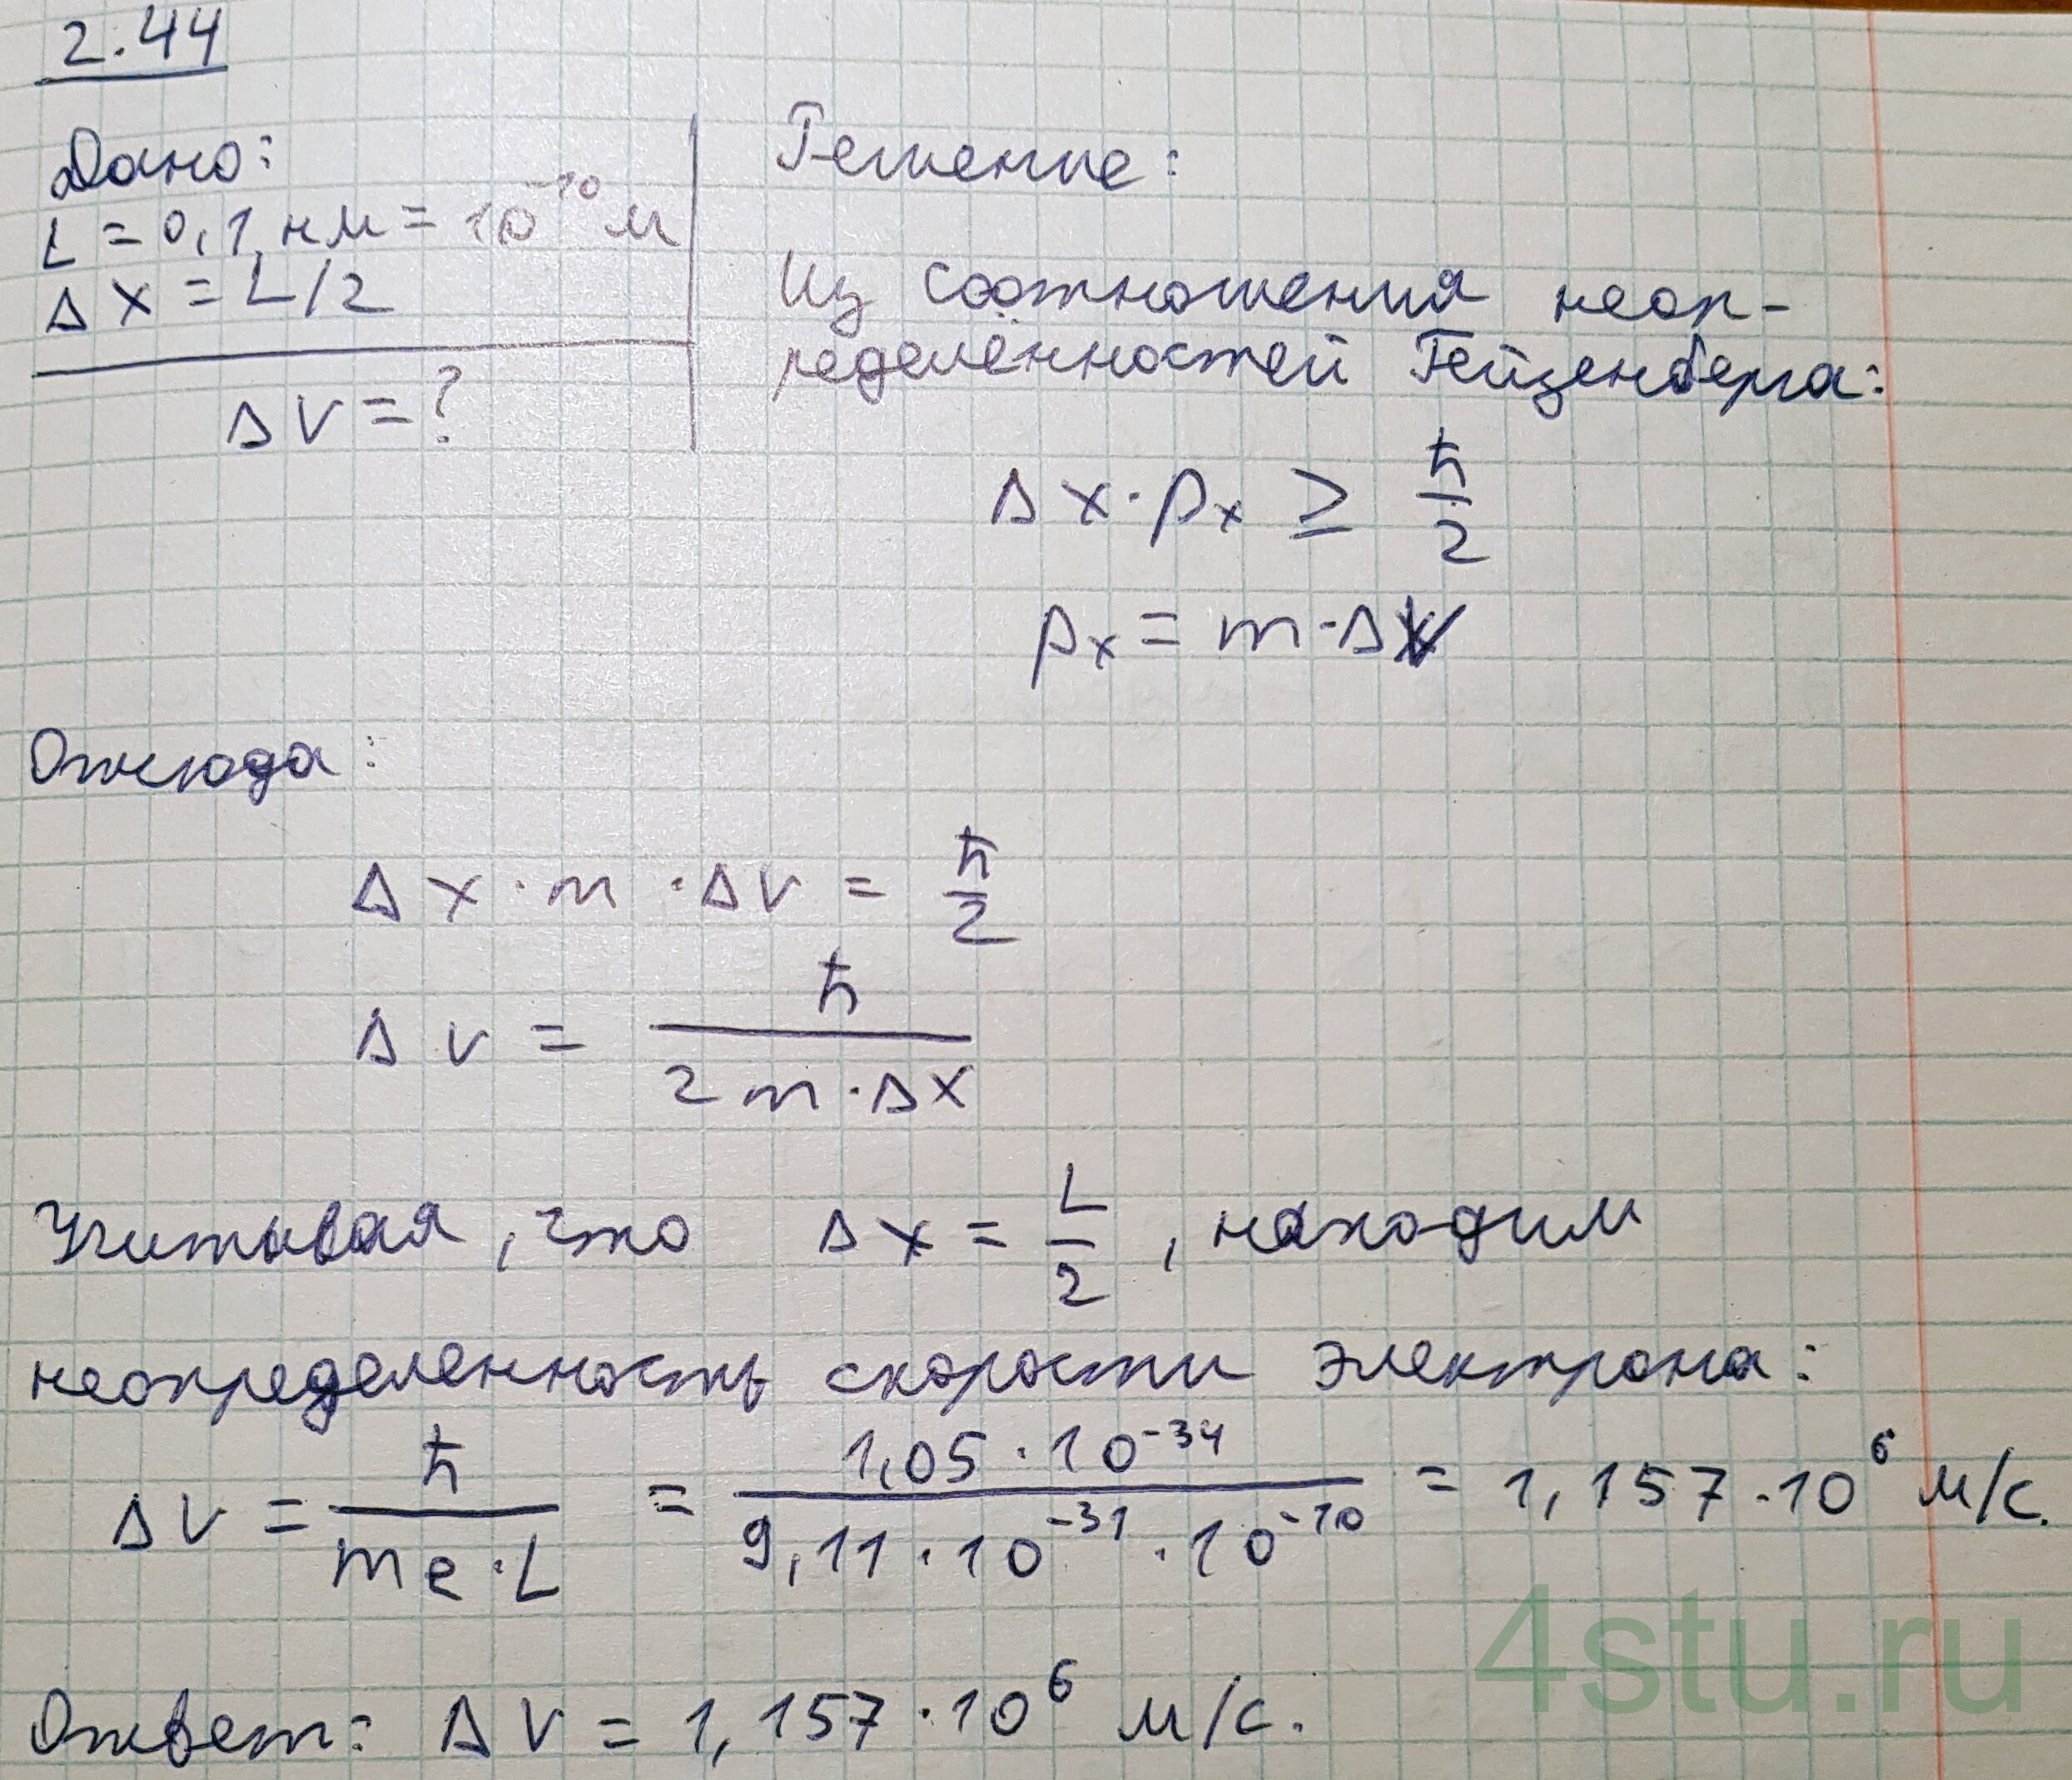 2.44
Дано:
L = 0,1 нм = 10⁻¹⁰ м
Δx = L/2
Δv = ?
Решение:
Из соотношения неоп-
ределённостей Гейзенберга:
Δx · pₓ ≥ ħ/2
pₓ = m · Δv
Отсюда:
Δx · m · Δv = ħ/2
Δv = ħ/(2m · Δx)
Учитывая, что Δx = L/2, находим
неопределенность скорости электрона:
Δv = ħ/(me · L) = (1,05 · 10⁻³⁴)/(9,11 · 10⁻³¹ · 10⁻¹⁰) = 1,157 · 10⁶ м/с.
4stu.ru
Ответ: Δv = 1,157 · 10⁶ м/с.